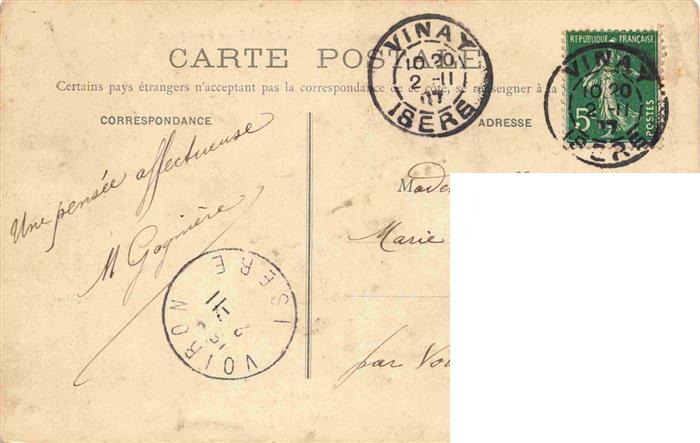 CARTE POSTALE
Certains pays étrangers n'acceptant pas la correspondance de ce côté, se renseigner à la
CORRESPONDANCE
ADRESSE
VINAY
10 20
2 - 11
07
ISÈRE
RÉPUBLIQUE FRANÇAISE
5
POSTES
VINAY
10 20
2 11
ISÈRE
Une pensée affectueuse
M Gagnière
Marie
par
VOIRON
2 - 11
ISERE